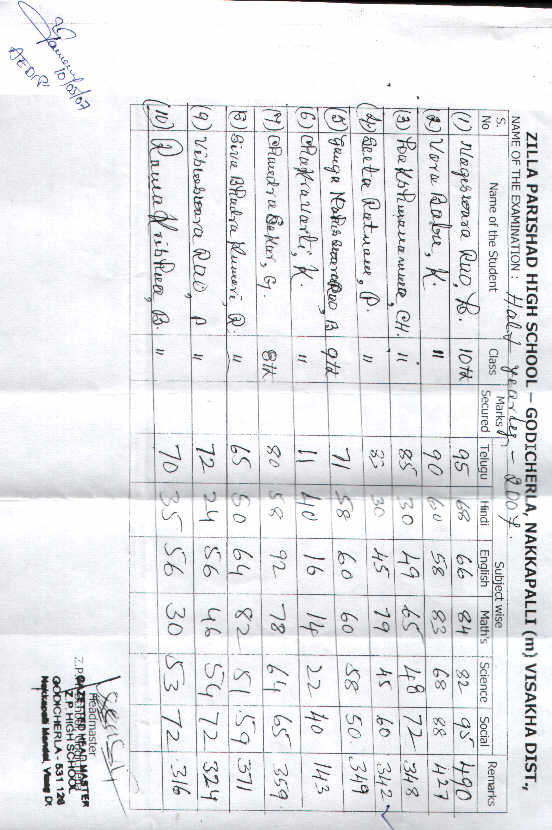 ZILLA PARISHAD HIGH SCHOOL – GODICHERLA, NAKKAPALLI (m) VISAKHA DIST.,
NAME OF THE EXAMINATION: Half yearly - 2007.
S. No Name of the Student Class Marks Secured Subject wise Remarks
Telugu Hindi English Math's Science Social
(1) Nageswara Rao, 10th 95 68 66 84 82 95 490
(2) Vara Babu, K. " 90 60 58 83 68 88 427
(3) CH. " 85 30 49 65 48 72 348
(4) Seeta Ratnam, P. " 33 30 45 79 45 60 342
(5) Ganga Rao B 9th 71 58 60 60 58 50 349
(6) Chakravarti, K. " 11 40 16 14 22 40 143
(7) Chandra Sekar, G. 8th 80 58 92 78 64 65 359
(8) Siva Bhadra Kumari, R. " 65 50 64 82 51 59 371
(9) Visweswara Rao, P " 72 24 56 46 54 72 324
(10) Rama Krishna, B. " 70 35 56 30 53 72 316
10/05/07
Headmaster
GAZETTED HEAD MASTER
Z.P HIGH SCHOOL
GODICHERLA - 531 126
Nakkapalli Mandal, Visag Dt